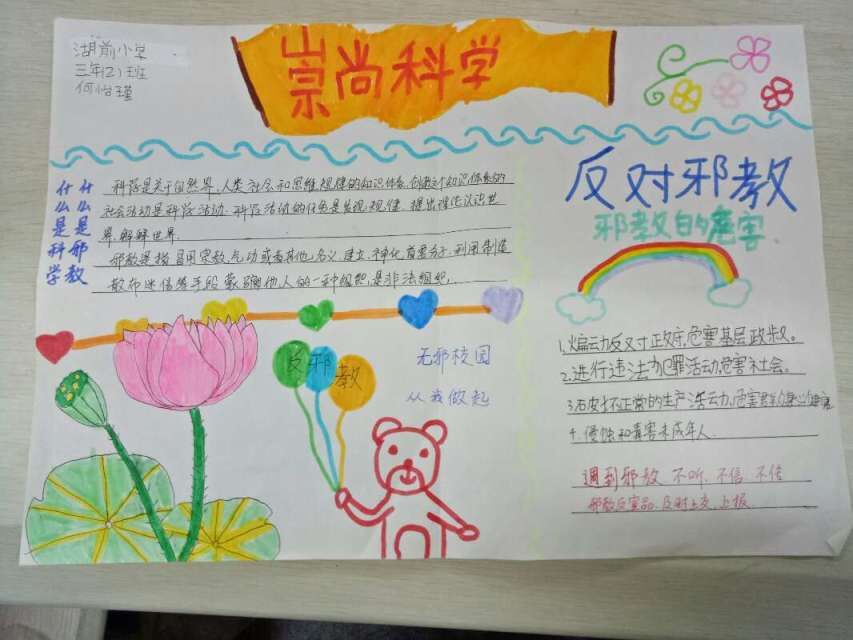 湖前小学
三年(2)班
何怡瑾
崇尚科学
什么是科学
什么是邪教
科学是关于自然界、人类社会和思维规律的知识体系,创造这个知识体系的
社会活动是科学活动,科学活动的任务是发现规律,提出理论认识世
界,解释世界.
邪教是指冒用宗教,气功或者其他名义建立,神化首要分子,利用制造
散布迷信等手段蒙骗他人的一种组织,是非法组织.
反对邪教
邪教的危害
1.煽动反对正府,危害基层政权。
2.进行违法犯罪活动危害社会。
3.正常的生产活动,危害群众身心健康
4.侵蚀和毒害未成年人.
遇到邪教 不听、不信、不传
邪教反宣品,及时上交、上报
反邪教
无邪校园
从我做起